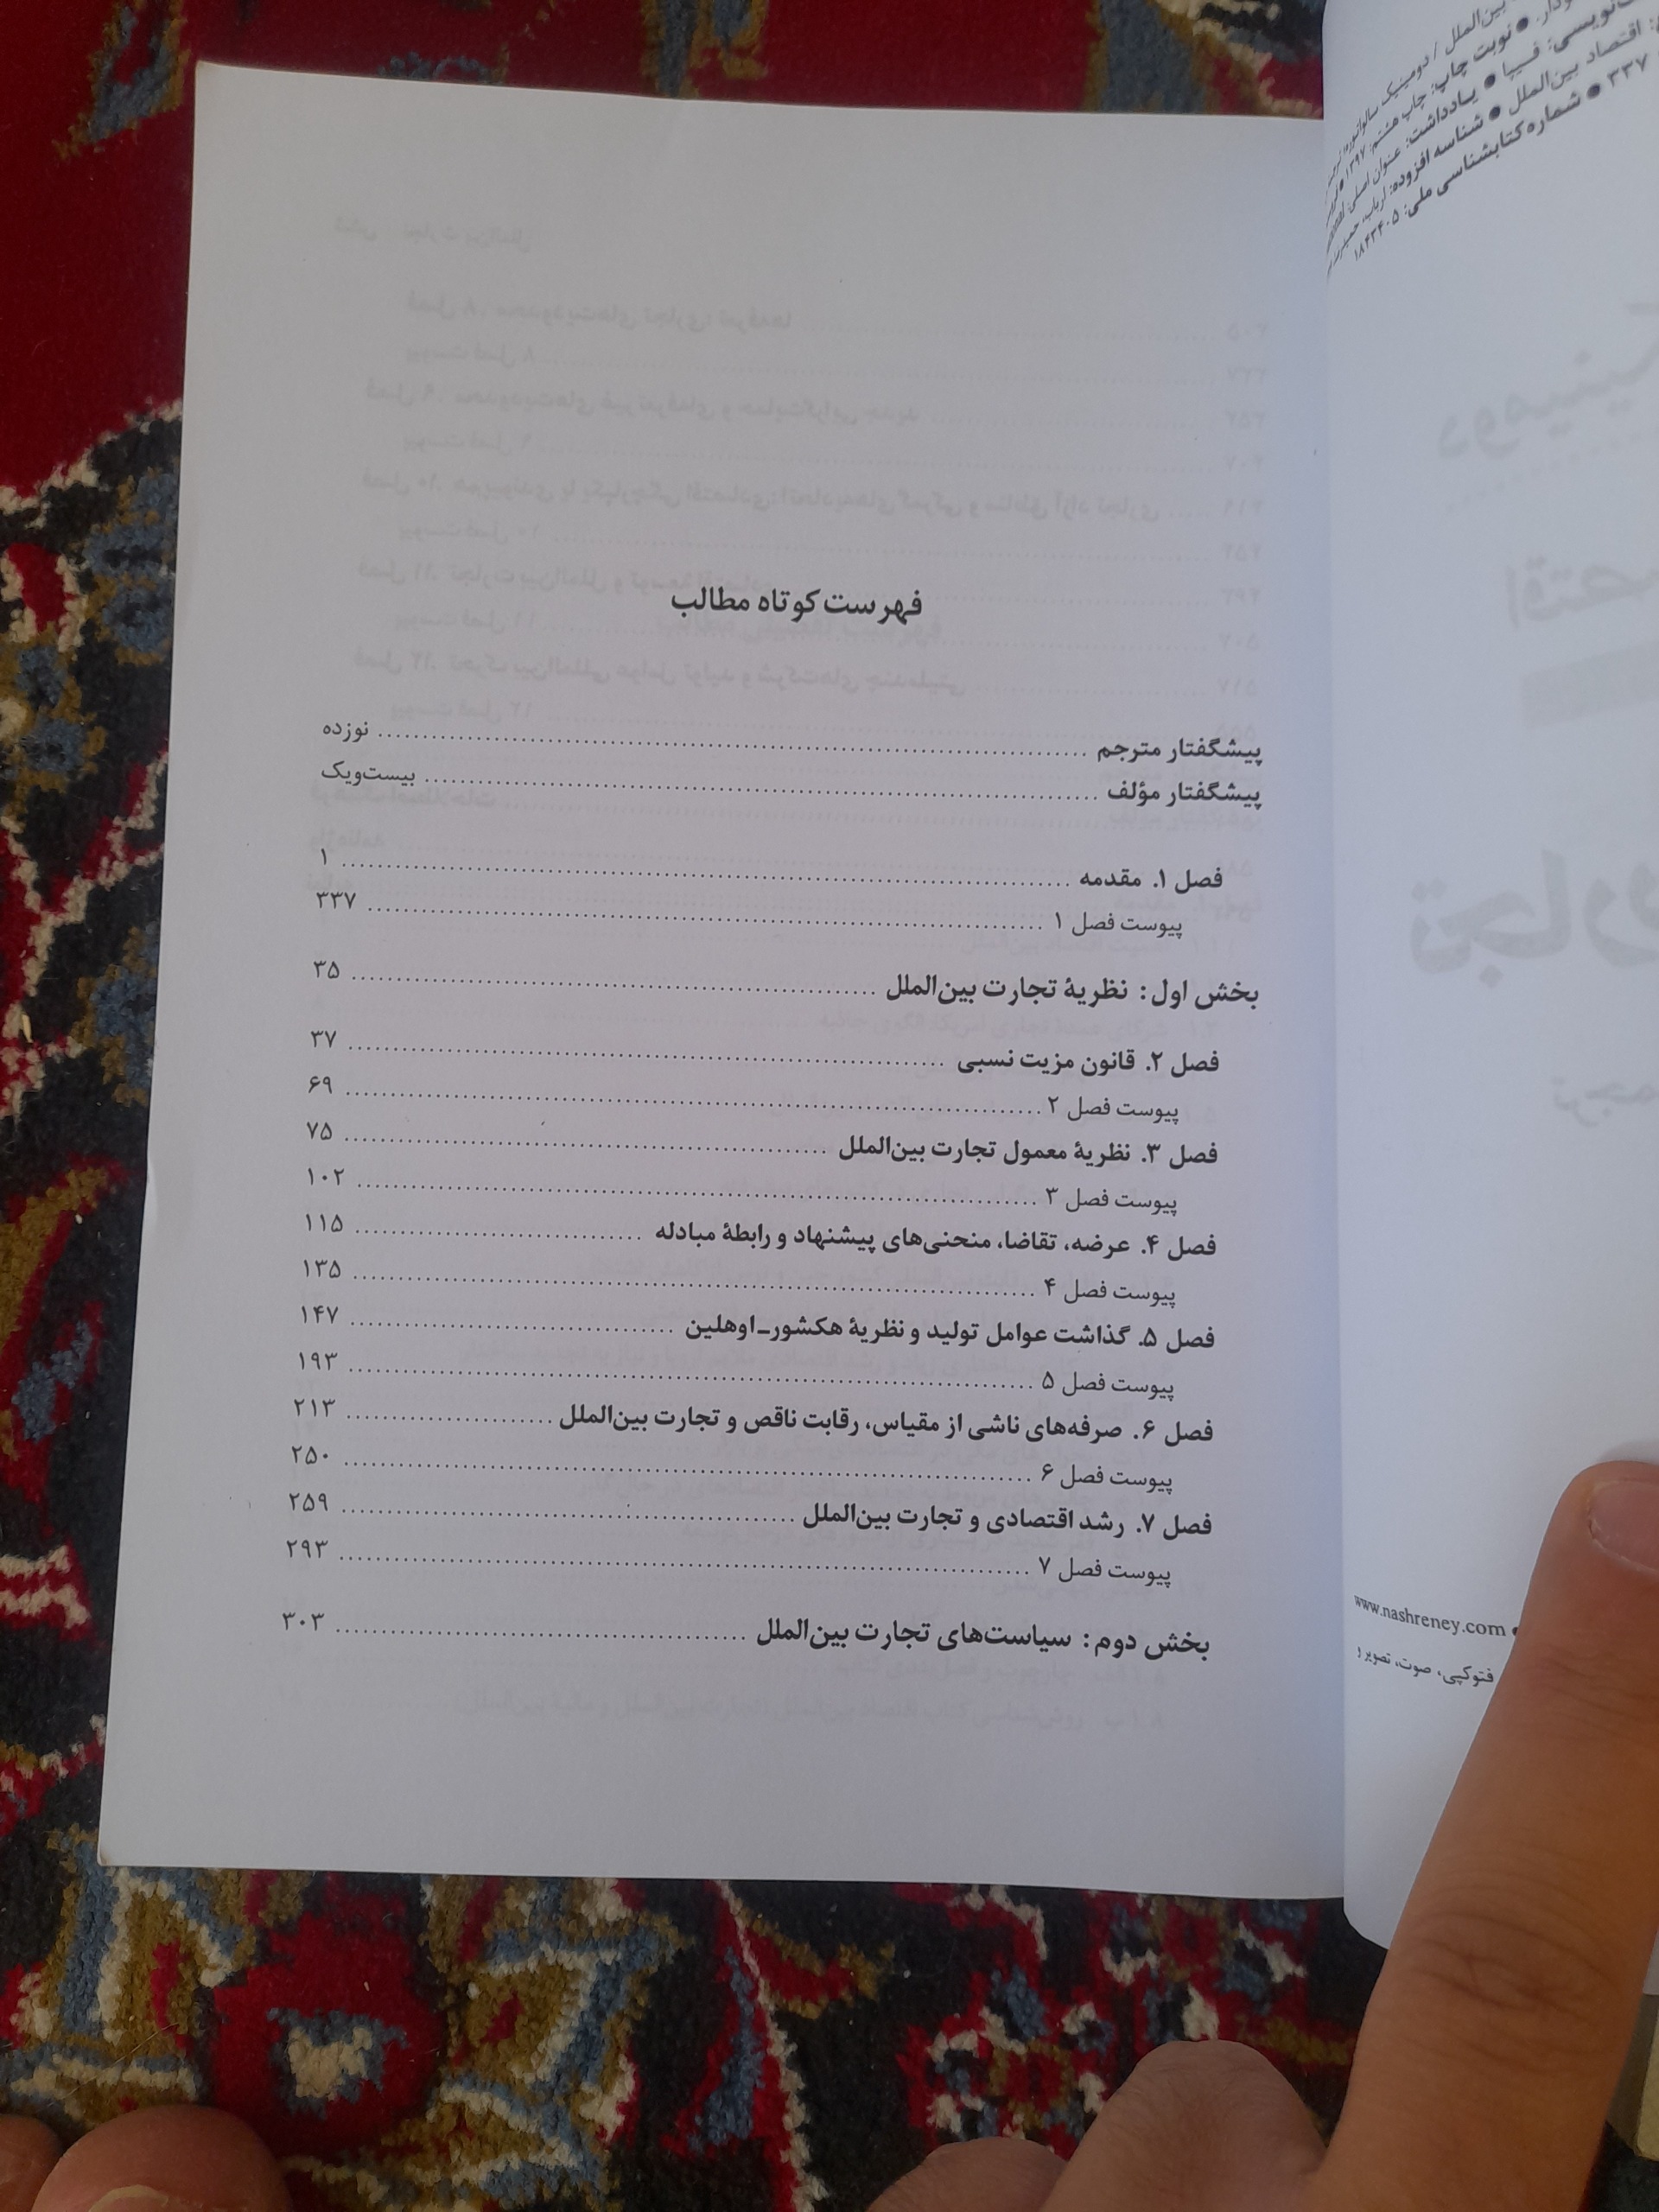 فهرست کوتاه مطالب
پیشگفتار مترجم ........ نوزده
پیشگفتار مؤلف ........ بیست‌ویک
فصل ۱. مقدمه ........ ۱
پیوست فصل ۱ ........ ۳۳۷
بخش اول: نظریهٔ تجارت بین‌الملل ........ ۳۵
فصل ۲. قانون مزیت نسبی ........ ۳۷
پیوست فصل ۲ ........ ۶۹
فصل ۳. نظریهٔ معمول تجارت بین‌الملل ........ ۷۵
پیوست فصل ۳ ........ ۱۰۲
فصل ۴. عرضه، تقاضا، منحنی‌های پیشنهاد و رابطهٔ مبادله ........ ۱۱۵
پیوست فصل ۴ ........ ۱۳۵
فصل ۵. گذاشت عوامل تولید و نظریهٔ هکشور-اوهلین ........ ۱۴۷
پیوست فصل ۵ ........ ۱۹۳
فصل ۶. صرفه‌های ناشی از مقیاس، رقابت ناقص و تجارت بین‌الملل ........ ۲۱۳
پیوست فصل ۶ ........ ۲۵۰
فصل ۷. رشد اقتصادی و تجارت بین‌الملل ........ ۲۵۹
پیوست فصل ۷ ........ ۲۹۳
بخش دوم: سیاست‌های تجارت بین‌الملل ........ ۳۰۳
بین‌الملل / دومینیک سالواتوره
● نوبت چاپ: چاپ هشتم: ۱۳۹۷
فیپا ● یادداشت: عنوان اصلی:
اقتصاد بین‌الملل ● شناسه افزوده: ارباب، حمیدرضا
۳۳۷ ● شماره کتابشناسی ملی: ۱۸۴۳۴۰۵
www.nashreney.com ●
فتوکپی، صوت، تصویر و